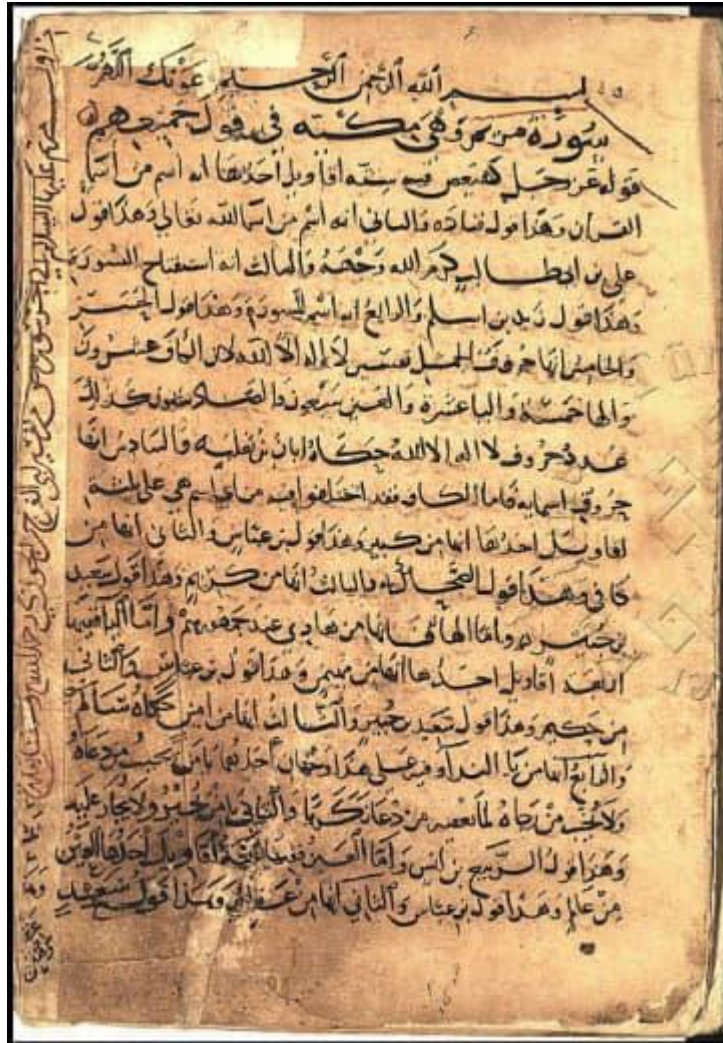 بسم الله الرحمن الرحيم عونك اللهم
سورة مريم وهي مكية في قول جميعهم
قوله عز وجل كهيعص فيه ستة أقاويل أحدها انه اسم من أسما
القران وهذا قول قتاده والثاني انه اسم من اسما الله تعالي وهذا قول
علي بن ابي طالب كرم الله وجهه والثالث انه استفتاح السورة
وهذا قول زيد بن اسلم والرابع انه اسم للسورة وهذا قول الحسن
والخامس انها حروف الجمل تفسير لا اله الا الله لان الكاف عشرون
والها خمسة واليا عشرة والعين سبعون والصاد تسعون كذلك
عدد حروف لا اله الا الله حكاه ابان بن تغلب والسادس انها
حروف اسما به فاما الكاف فقد اختلفوا فيه من اي اسم هي على ثلثة
اقاويل احدها انها من كبير وهذا قول بن عباس والثاني انها من
كافي وهذا قول الضحاك والثالث انها من كريم وهذا قول سعيد
بن جبير واما الها فانها من هادي عند جميعهم واما اليا ففيها
اربعة أقاويل احدها انها من يمين وهذا قول بن عباس والثاني
من حكيم وهذا قول سعيد بن جبير والثالث انها من امين حكاه سالم
والرابع انها من يا الندا وفيه على هذا وجهان أحدهما يا من يجيب من دعاه
ولا يخيب من رجاه لما تعقبه من دعا زكريا والثاني يا من يجير ولا يجار عليه
وهذا قول الربيع بن انس وأما العين ففيها ثلثة أقاويل احدها انها
من عالم وهذا قول بن عباس والثاني انها من عزيز وهذا قول سعيد